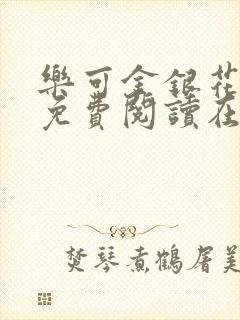 樂可金銀花
免費閱讀在
焚琴煮鶴屠美